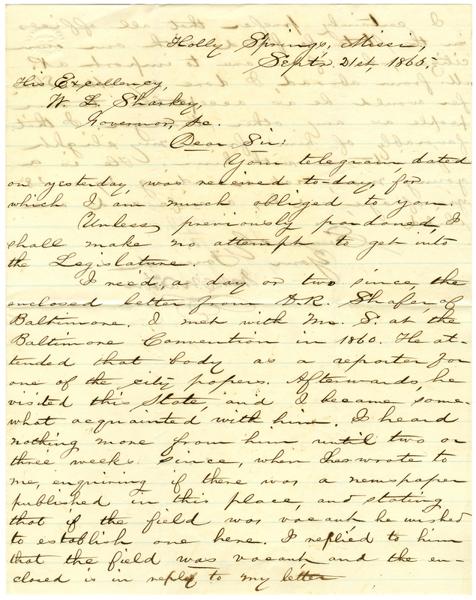 Holly Springs, Missi,
Septr 21st, 1865.
His Excellency,
W. L. Sharkey,
Governor, &c.
Dear Sir:
Your telegram dated
on yesterday, was received to-day, for
which I am much obliged to you.
Unless previously pardoned, I
shall make no attempt to get into
the Legislature.
I rec'd, a day or two since, the
enclosed letter from D.R. Shafer, of
Baltimore. I met with Mr. S. at the
Baltimore Convention in 1860. He at-
tended that body as a reporter for
one of the city papers. Afterwards, he
visited this State, and I became some-
what acquainted with him. I heard
nothing more from him until two or
three weeks since, when he wrote to
me, enquiring if there was a newspaper
published in this place, and stating
that if the field was vacant he wished
to establish one here. I replied to him
that the field was vacant and the en-
closed is in reply to my letter